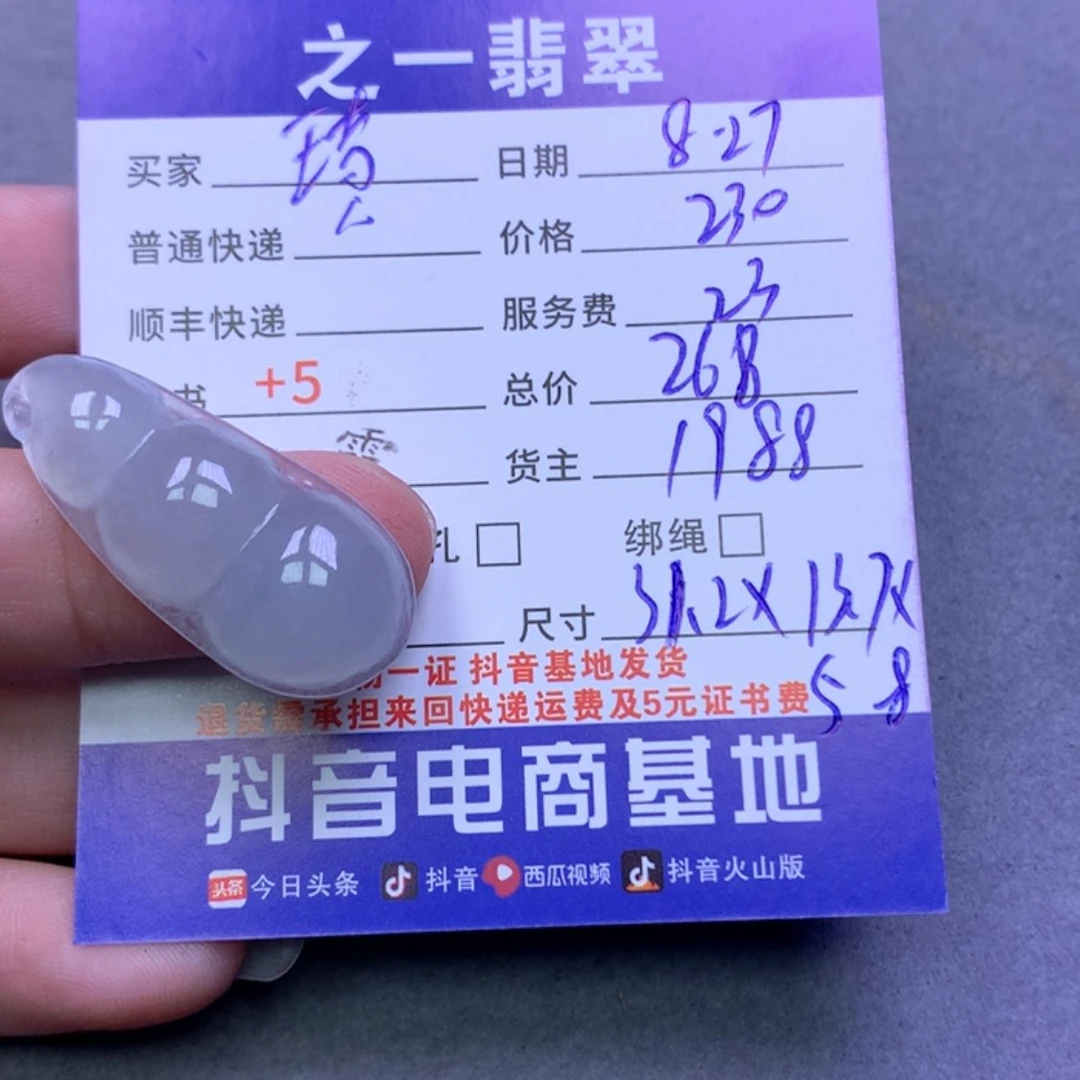 之一翡翠
买家 日期 8.27
普通快递 价格 230
顺丰快递 服务费 23
书 +5 总价 268
货主 1988
孔 绑绳
尺寸 31.2X 13.7X
5.8
一证 抖音基地发货
退货需承担来回快递运费及5元证书费
抖音电商基地
头条 今日头条 抖音 西瓜视频 抖音火山版